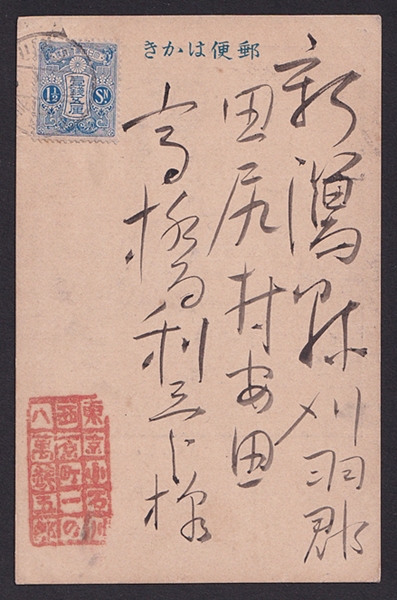 郵便はかき
新潟縣刈羽郡
田尻村安田
高 利三 様
1½ Sn
壹錢五厘
東京小石川
西原町一の
八萬 五郎